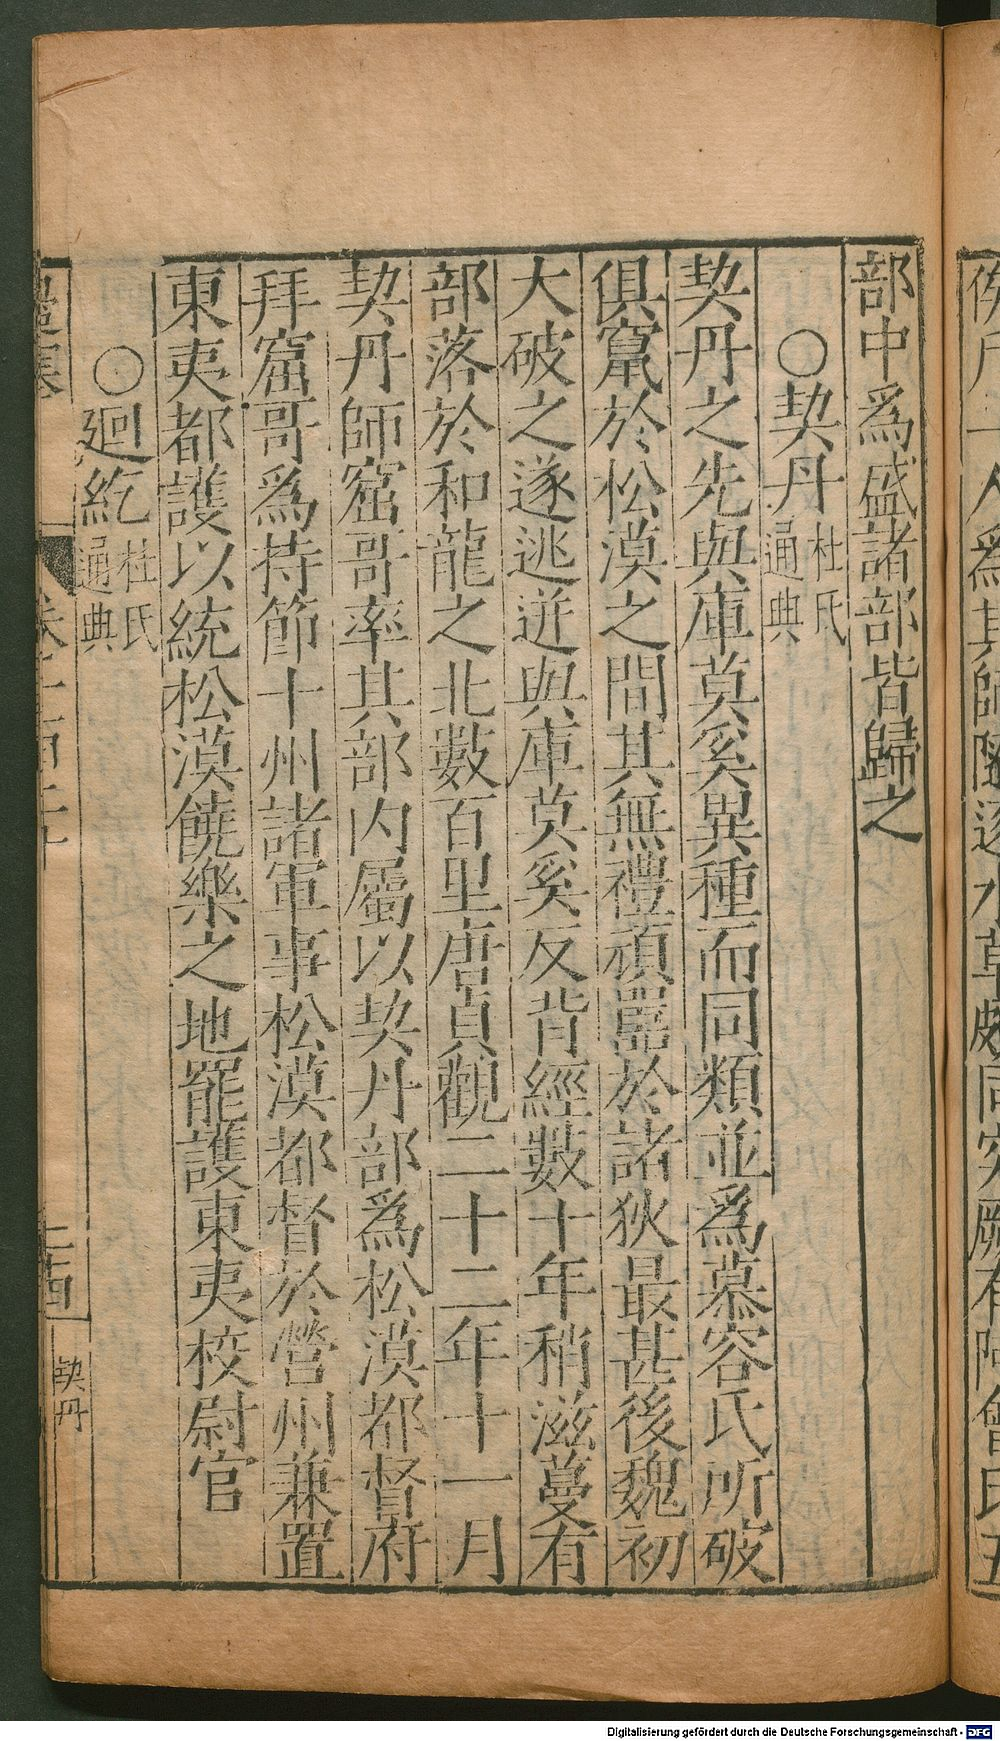 部中爲盛諸部皆歸之
○契丹杜氏通典
契丹之先與庫莫奚異種而同類並爲慕容氏所破
俱竄於松漠之間其無禮頑嚚於諸狄最甚後魏初
大破之遂逃迸與庫莫奚反背經數十年稍滋蔓有
部落於和龍之北數百里唐貞觀二十二年十一月
契丹師窟哥率其部内屬以契丹部爲松漠都督府
拜窟哥爲持節十州諸軍事松漠都督於營州兼置
東夷都護以統松漠饒樂之地罷護東夷校尉官
○廻紇杜氏通典
二四
契丹
Digitalisierung gefördert durch die Deutsche Forschungsgemeinschaft - DFG